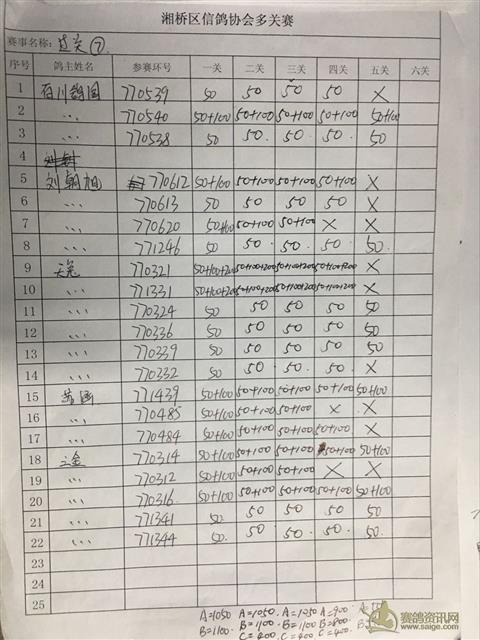 湘桥区信鸽协会多关赛
赛事名称: 过关⑦
序号 鸽主姓名 参赛环号 一关 二关 三关 四关 五关 六关
1 770539 50 50 50 50 X
2 〃 770540 50+100 50+100 50+100 50+100 50+100
3 〃 770538 50 50 50 50 50
4
5 刘朝旭 770612 50+100 50+100 50+100 50+100 X
6 〃 770613 50 50 50 50 X
7 〃 770620 50+100 50+100 50+100 X X
8 〃 771246 50 50 50 50 50
9 770321 50+100+200 50+100+200 50+100+200 50+100+200 X
10 〃 771331 50+100+200 50+100+200 50+100+200 50+100+200 X
11 〃 770324 50 50 50 50 50
12 〃 770336 50 50 50 50 50
13 〃 770339 50 50 50 50 50
14 〃 770332 50 50 50 50 X
15 771439 50+100 50+100 50+100 50+100 50+100
16 〃 770485 50+100 50+100 50+100 X X
17 〃 770484 50+100 50+100 50+100 50+100 X
18 770314 50+100 50+100 50+100 50+100 50+100
19 〃 770312 50+100 50+100 50+100 X X
20 〃 770316 50+100 50+100 50+100 50+100 50+100
21 〃 771341 50 50 50 50 50
22 〃 771344 50 50 50 50 50
23
24
25
A=1050 A=1050 A=1050 A=900
B=1100 B=1100 B=1100 B=800
C=800 C=800 C=800
赛鸽资讯网
www.saige.com